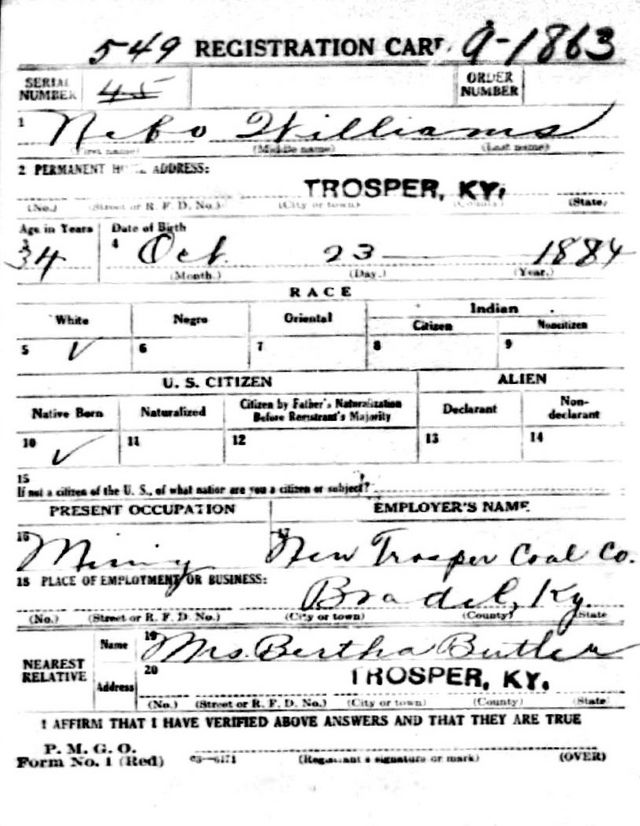 549 REGISTRATION CARD. A-1863
SERIAL NUMBER 45 ORDER NUMBER
1 Nebo Williams
(First name) (Middle name) (Last name)
2 PERMANENT HOME ADDRESS:
TROSPER, KY.
(No.) (Street or R. F. D. No.) (City or town) (County) (State)
Age in Years Date of Birth
3 34 4 Oct. 23 1884
(Month.) (Day.) (Year.)
RACE
White Negro Oriental Indian
Citizen Noncitizen
5 ✓ 6 7 8 9
U. S. CITIZEN ALIEN
Native Born Naturalized Citizen by Father's Naturalization Before Registrant's Majority Declarant Non-declarant
10 ✓ 11 12 13 14
15
If not a citizen of the U. S., of what nation are you a citizen or subject?
PRESENT OCCUPATION EMPLOYER'S NAME
16 Mining 17 New Trosper Coal Co.
18 PLACE OF EMPLOYMENT OR BUSINESS:
Ky.
(No.) (Street or R. F. D. No.) (City or town) (County) (State
NEAREST RELATIVE Name 19 Mrs. Bertha Butler
Address 20 TROSPER, KY.
(No.) (Street or R. F. D. No.) (City or town) (County) (State)
I AFFIRM THAT I HAVE VERIFIED ABOVE ANSWERS AND THAT THEY ARE TRUE
P. M. G. O.
Form No. 1 (Red) 03—6171 (Registrant's signature or mark) (OVER)